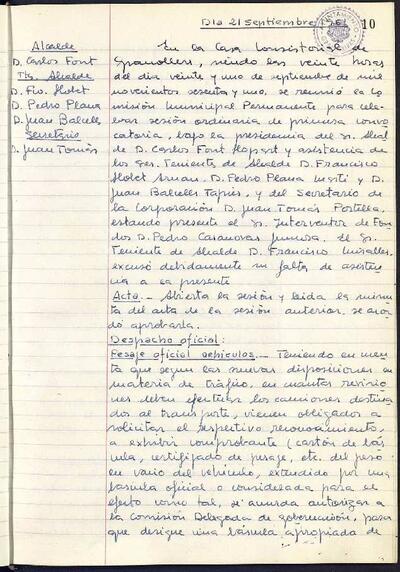 Día 21 septiembre 1961
10
Alcalde
D. Carlos Font
Tts. Alcalde
D. Fco. Llobet
D. Pedro Plana
D. Juan Balcells
Secretario
D. Juan Tomás
En la Casa Consistorial de
Granollers, siendo las veinte horas
del día veinte y uno de septiembre de mil
novecientos sesenta y uno, se reunió la Co
misión Municipal Permanente para cele
brar sesión ordinaria de primera convo
catoria, bajo la presidencia del Sr. Alcal
de D. Carlos Font Llopart y asistencia de
los Sres. Teniente de Alcalde D. Francisco
Llobet Arnan, D. Pedro Plana y D.
Juan Balcells Tapies, y del Secretario de
la Corporación D. Juan Tomás Portella,
estando presente el Sr. Interventor de Fon
dos D. Pedro Casanovas. El Sr.
Teniente de Alcalde D. Francisco
excusó debidamente su falta de asisten
cia a la presente
Acta.- Abierta la sesión y leída la minu
ta del acta de la sesión anterior, se acor
dó aprobarla.
Despacho oficial:
Pesaje oficial vehículos.- Teniendo en cuen
ta que segun las nuevas disposiciones en
materia de tráfico, en cuantas revisio
nes deben efectuar los camiones destina
dos al transporte, vienen obligados a
solicitar el respectivo reconocimiento,
a exhibir comprobante (cartón de bás
cula, certificado de pesaje, etc. del peso
en vacio del vehículo, extendido por una
báscula oficial o considerada para el
efecto como tal, se acuerda autorizar a
la Comisión Delegada de Gobernación, para
que designe una báscula apropiada de